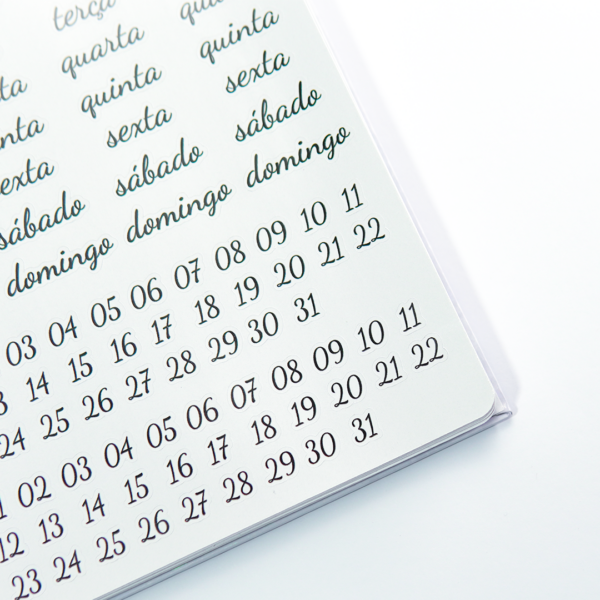 terça
quarta
quinta quinta
sexta sexta
sábado sábado sábado
domingo domingo domingo
03 04 05 06 07 08 09 10 11
14 15 16 17 18 19 20 21 22
24 25 26 27 28 29 30 31
02 03 04 05 06 07 08 09 10 11
12 13 14 15 16 17 18 19 20 21 22
23 24 25 26 27 28 29 30 31